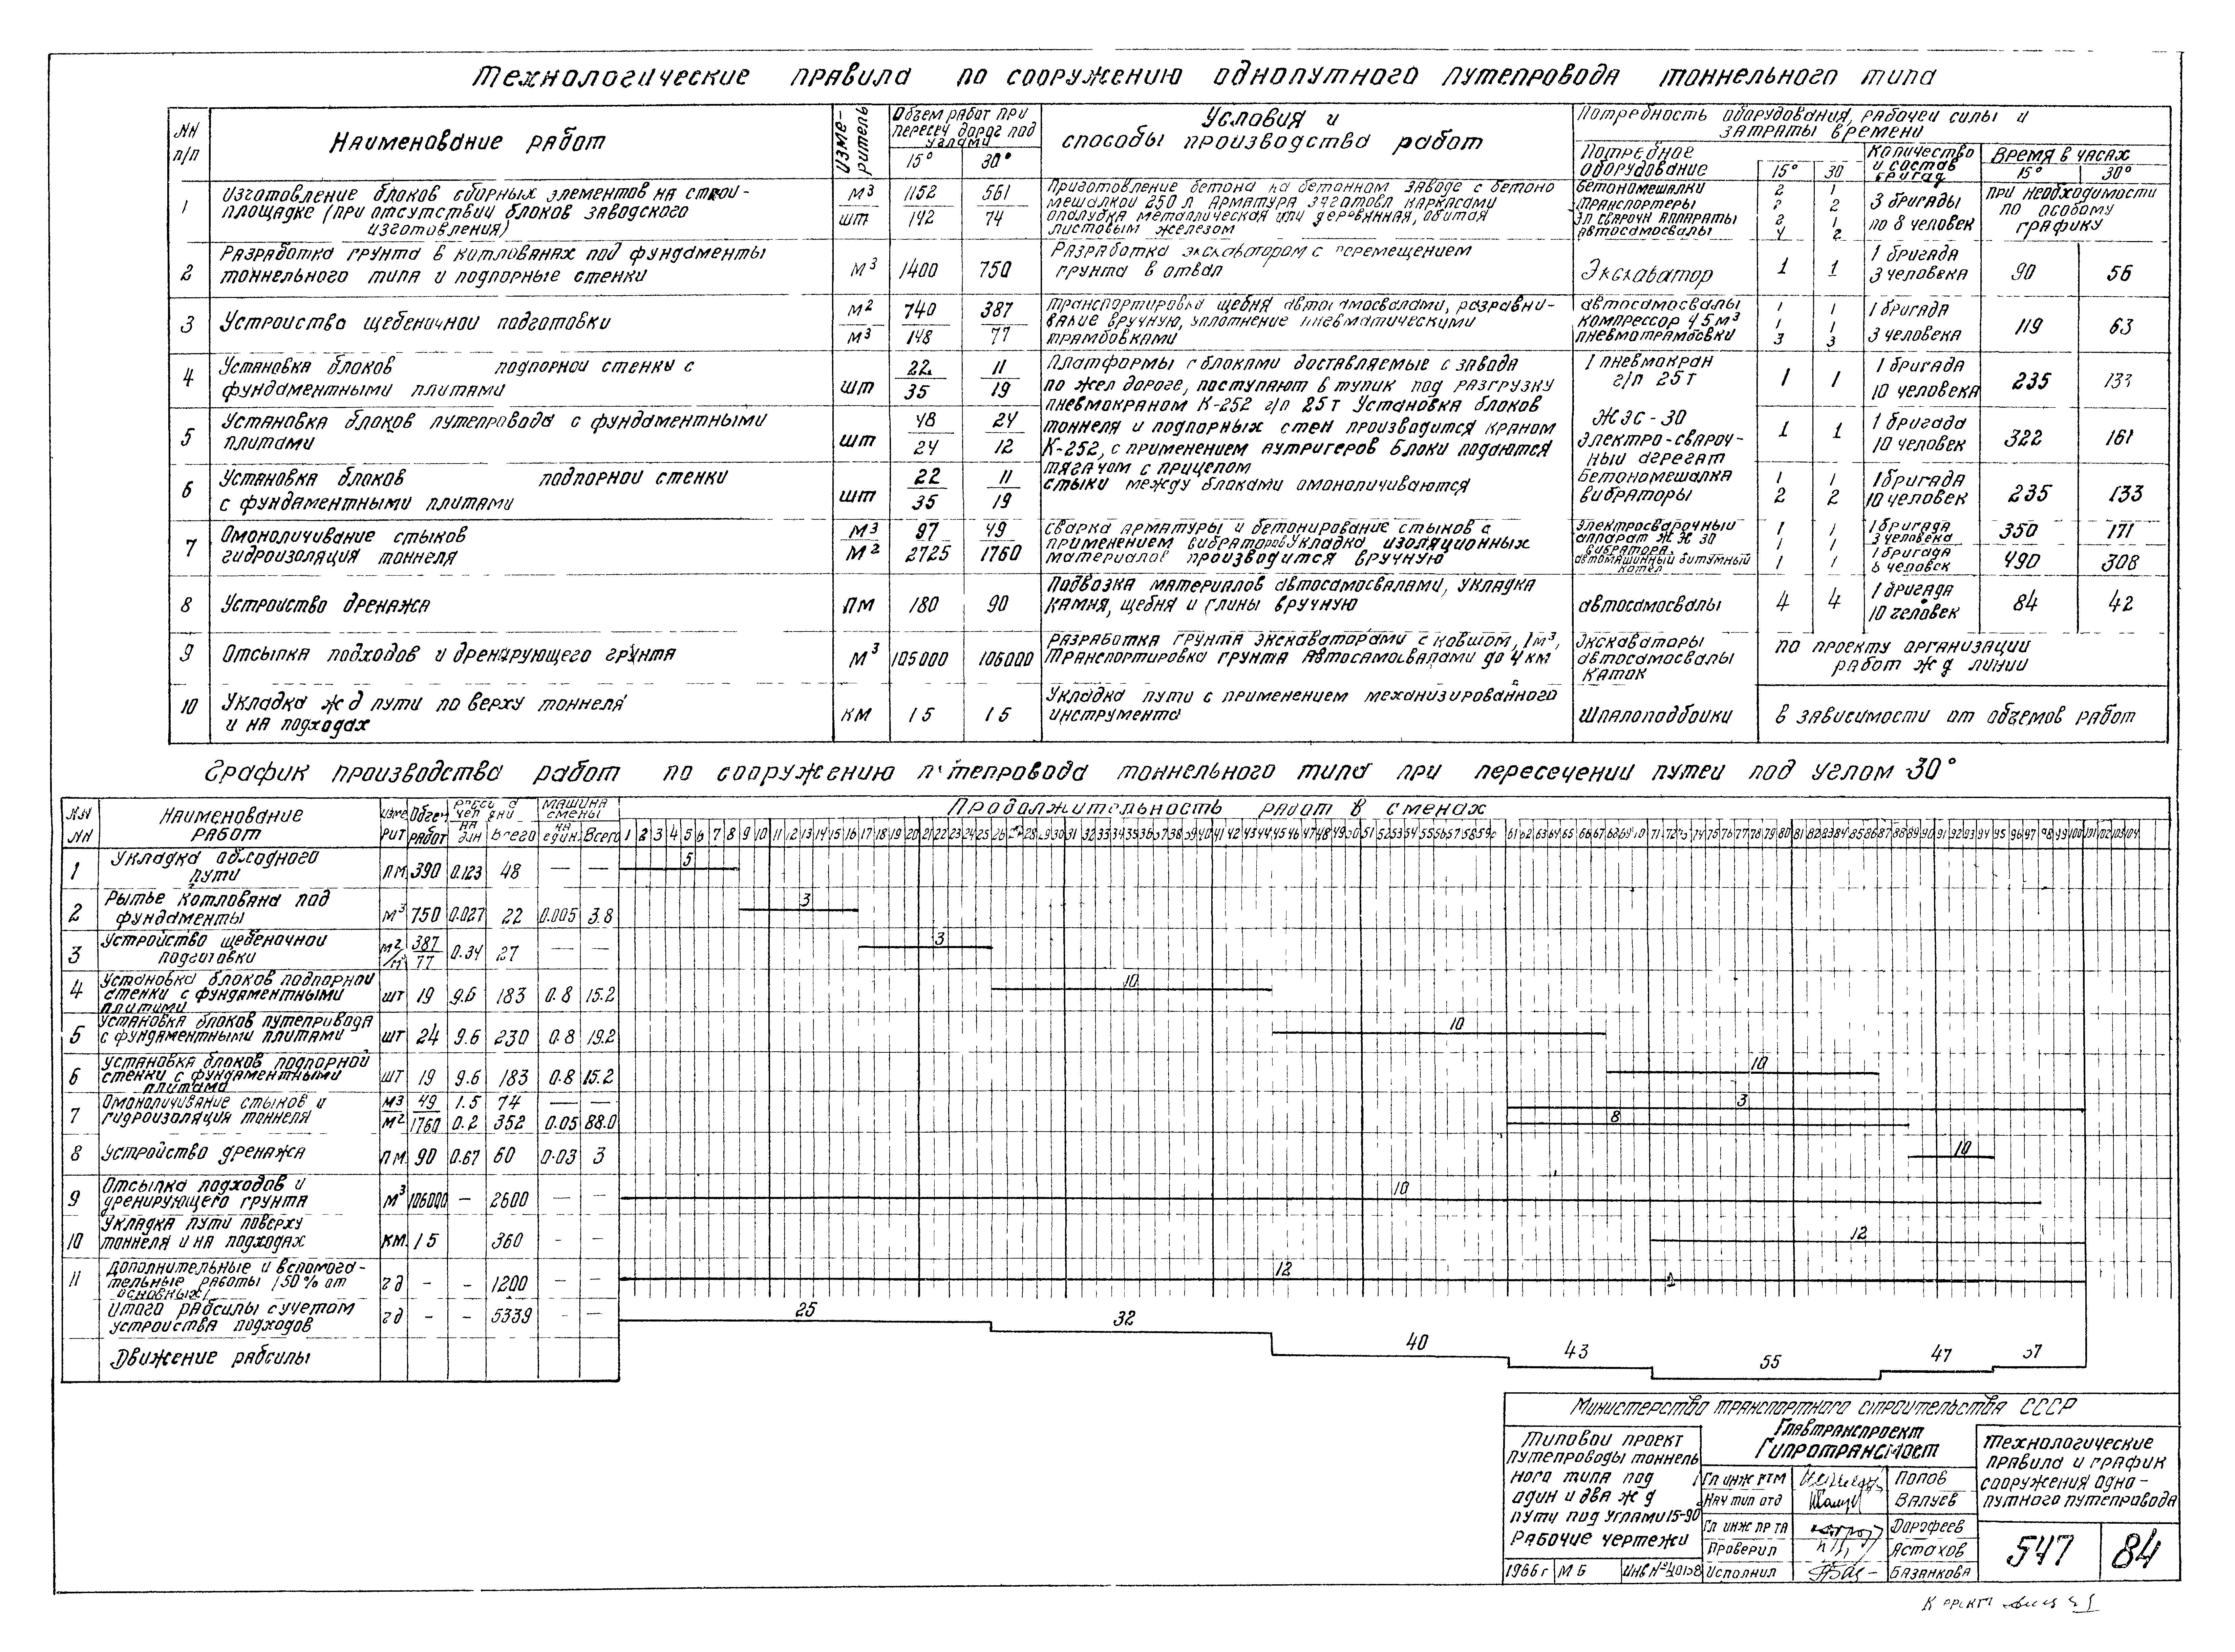 Технологические правила по сооружению однопутного путепровода тоннельного типа
NN п/п
Наименование работ
Измеритель
Объем работ при пересеч дорог под углами
15° 30°
Условия и способы производства работ
Потребность оборудования, рабочей силы и затраты времени
Потребное оборудование
15° 30
Количество и состав бригад
Время в часах
15° 30°
1
Изготовление блоков сборных элементов на строи-
площадке (при отсутствии блоков заводского
изготовления)
м³ 1152 561
шт 142 74
Приготовление бетона на бетонном заводе с бетоно
мешалкой 250 л Арматура заготовл каркасами
опалубка металлическая или деревянная, обитая
листовым железом
бетономешалки 2 1
транспортеры 2 2
эл сварочн аппараты 2 1
автосамосвалы 4 2
3 бригады
по 8 человек
при необходимости
по особому
графику
2
Разработка грунта в котлованах под фундаменты
тоннельного типа и подпорные стенки
м³ 1400 750
Разработка экскаватором с перемещением
грунта в отвал
Экскаватор 1 1
1 бригада
3 человека
90 56
3
Устройство щебеничной подготовки
м² 740 387
м³ 148 77
транспортировка щебня автосамосвалами, разравни-
вание вручную, уплотнение пневматическими
трамбовками
автосамосвалы 1 1
компрессор 4 5 м³ 1 1
пневмотрамбовки 3 3
1 бригада
3 человека
119 63
4
Установка блоков подпорной стенки с
фундаментными плитами
шт
22 11
35 19
Платформы с блоками доставляемые с завода
по жел дороге, поступают в тупик под разгрузку
пневмокраном К-252 г/п 25т Установка блоков
тоннеля и подпорных стен производится краном
К-252, с применением аутригеров Блоки подаются
тягачом с прицепом
стыки между блоками омоноличиваются
1 пневмокран
г/п 25т
1 1
1 бригада
10 человека
235 133
5
Установка блоков путепровода с фундаментными
плитами
шт
48 24
24 12
ЖЗС-30
электро-свароч-
ный агрегат
1 1
1 бригада
10 человек
322 161
6
Установка блоков подпорной стенки
с фундаментными плитами
шт
22 11
35 19
Бетономешалка 1 1
вибраторы 2 2
1 бригада
10 человек
235 133
7
Омоноличивание стыков
гидроизоляция тоннеля
м³ 97 49
м² 2725 1760
Сварка арматуры и бетонирование стыков с
применением вибраторов Укладка изоляционных
материалов производится вручную
электросварочный
аппарат ЖЖ 30 1 1
вибратора, 1 1
автомашинный битумный
котел 1 1
1 бригада
3 человека
350 171
1 бригада
8 человек
490 308
8
Устройство дренажа
пм 180 90
Подвозка материалов автосамосвалами, укладка
камня, щебня и глины вручную
автосамосвалы 4 4
1 бригада
10 человек
84 42
9
Отсыпка подходов и дренирующего грунта
м³ 105000 106000
Разработка грунта экскаваторами с ковшом, 1м³,
транспортировка грунта автосамосвалами до 4 км
Экскаваторы
автосамосвалы
каток
по проекту организации
работ ж д линии
10
Укладка ж д пути по верху тоннеля
и на подходах
км 15 15
Укладка пути с применением механизированного
инструмента
Шпалоподбойки
в зависимости от объемов работ
График производства работ по сооружению путепровода тоннельного типа при пересечении путей под углом 30°
NN
Наименование работ
Измерит
Объем работ
чел дни
на един всего
машина смены
на един. Всего
Продолжительность работ в сменах
1 2 3 4 5 6 7 8 9 10 11 12 13 14 15 16 17 18 19 20 21 22 23 24 25 26 27 28 29 30 31 32 33 34 35 36 37 38 39 40 41 42 43 44 45 46 47 48 49 50 51 52 53 54 55 56 57 58 59 60 61 62 63 64 65 66 67 68 69 70 71 72 73 74 75 76 77 78 79 80 81 82 83 84 85 86 87 88 89 90 91 92 93 94 95 96 97 98 99 100 101 102 103 104
1 Укладка обходного пути пм 390 0.123 48 — — 5
2 Рытье котлована под фундаменты м³ 750 0.027 22 0.005 3.8 3
3 Устройство щебеночной подготовки м²/м³ 387/77 0.34 27 — — 3
4 Установка блоков подпорной
стенки с фундаментными
плитами шт 19 9.6 183 0.8 15.2 10
5 Установка блоков путепровода
с фундаментными плитами шт 24 9.6 230 0.8 19.2 10
6 Установка блоков подпорной
стенки с фундаментными
плитами шт 19 9.6 183 0.8 15.2 10
7 Омоноличивание стыков и м³ 49 1.5 74 — — 3
гидроизоляция тоннеля м² 1760 0.2 352 0.05 88.0 8
8 Устройство дренажа пм. 90 0.67 60 0.03 3 10
9 Отсыпка подходов и
дренирующего грунта м³ 106000 — 2600 — — 10
10 Укладка пути поверху
тоннеля и на подходах км. 15 360 — — 12
11 Дополнительные и вспомога-
тельные работы (50% от
основных) чд — — 1200 — — 12
Итого рабсилы с учетом
устройства подходов чд — — 5339 — —
Движение рабсилы
25 32 40 43 55 47 37
Министерство транспортного строительства СССР
Типовой проект
путепроводы тоннель
ного типа под
один и два ж д
пути под углами 15-90
Рабочие чертежи
1966г М Б ИНВ №
Главтранспроект
Гипротрансмост
Гл инж ГТМ Попов
Нач тип отд Валуев
Гл инж пр та Дорофеев
Проверил Астахов
Исполнил Базанкова
Технологические
правила и график
сооружения одно-
путного путепровода
547 84